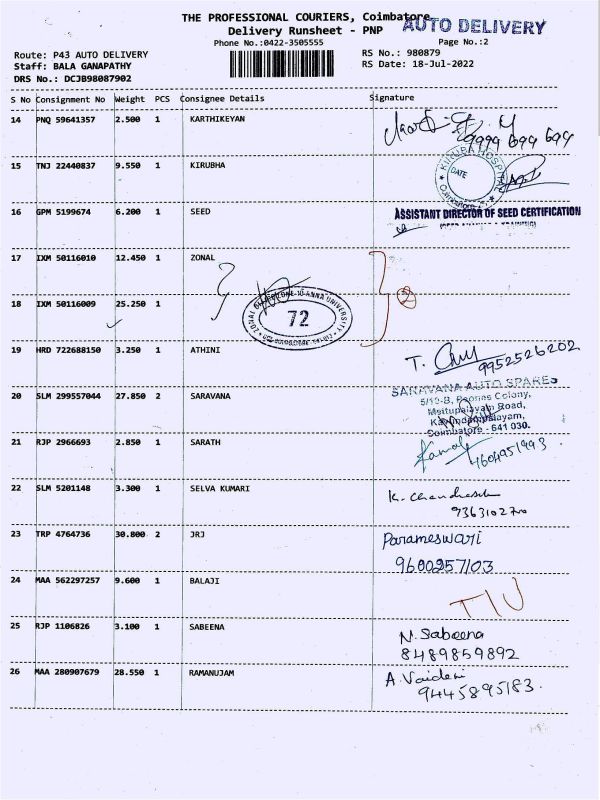 THE PROFESSIONAL COURIERS, Coimbatore
AUTO DELIVERY
Delivery Runsheet - PNP
Phone No.:0422-3505555
Page No.:2
Route: P43 AUTO DELIVERY
RS No.: 980879
Staff: BALA GANAPATHY
RS Date: 18-Jul-2022
DRS No.: DCJB98087902
S No Consignment No Weight PCS Consignee Details Signature
14 PNQ 59641357 2.500 1 KARTHIKEYAN
9999 699 699
15 TNJ 22440837 9.550 1 KIRUBHA
KIRUBA HOSPITAL
DATE
Coimbatore
16 GPM 5199674 6.200 1 SEED
ASSISTANT DIRECTOR OF SEED CERTIFICATION
17 IXM 50116010 12.450 1 ZONAL
2
18 IXM 50116009 25.250 1
ANNA UNIVERSITY
72
19 HRD 722688150 3.250 1 ATHINI
T.
9952526202
20 SLM 299557044 27.850 2 SARAVANA
SARAVANA AUTO SPARES
5/13-B, Peones Colony,
Mettupalayam Road,
Kavundampalayam,
Coimbatore - 641 030.
21 RJP 2966693 2.850 1 SARATH
Kamal
9604951993
22 SLM 5201148 3.300 1 SELVA KUMARI
K. Chandrasek
9363102700
23 TRP 4764736 30.800 2 JRJ
Parameswari
9600257103
24 MAA 562297257 9.600 1 BALAJI
25 RJP 1106826 3.100 1 SABEENA
N. Sabeena
8489859892
26 MAA 280907679 28.550 1 RAMANUJAM
A. Vaideni
9445895183.